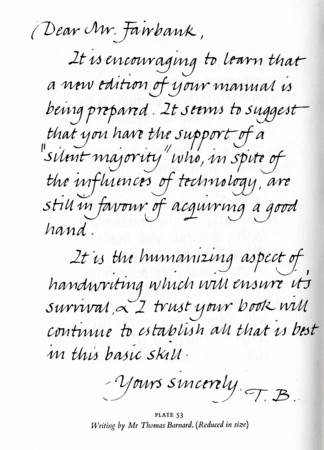 Dear Mr. Fairbank,
It is encouraging to learn that
a new edition of your manual is
being prepared. It seems to suggest
that you have the support of a
"silent majority" who, in spite of
the influences of technology, are
still in favour of acquiring a good
hand.
It is the humanizing aspect of
handwriting which will ensure it's
survival, & I trust your book will
continue to establish all that is best
in this basic skill.
Yours sincerely,
T. B.
PLATE 53
Writing by Mr Thomas Barnard. (Reduced in size)